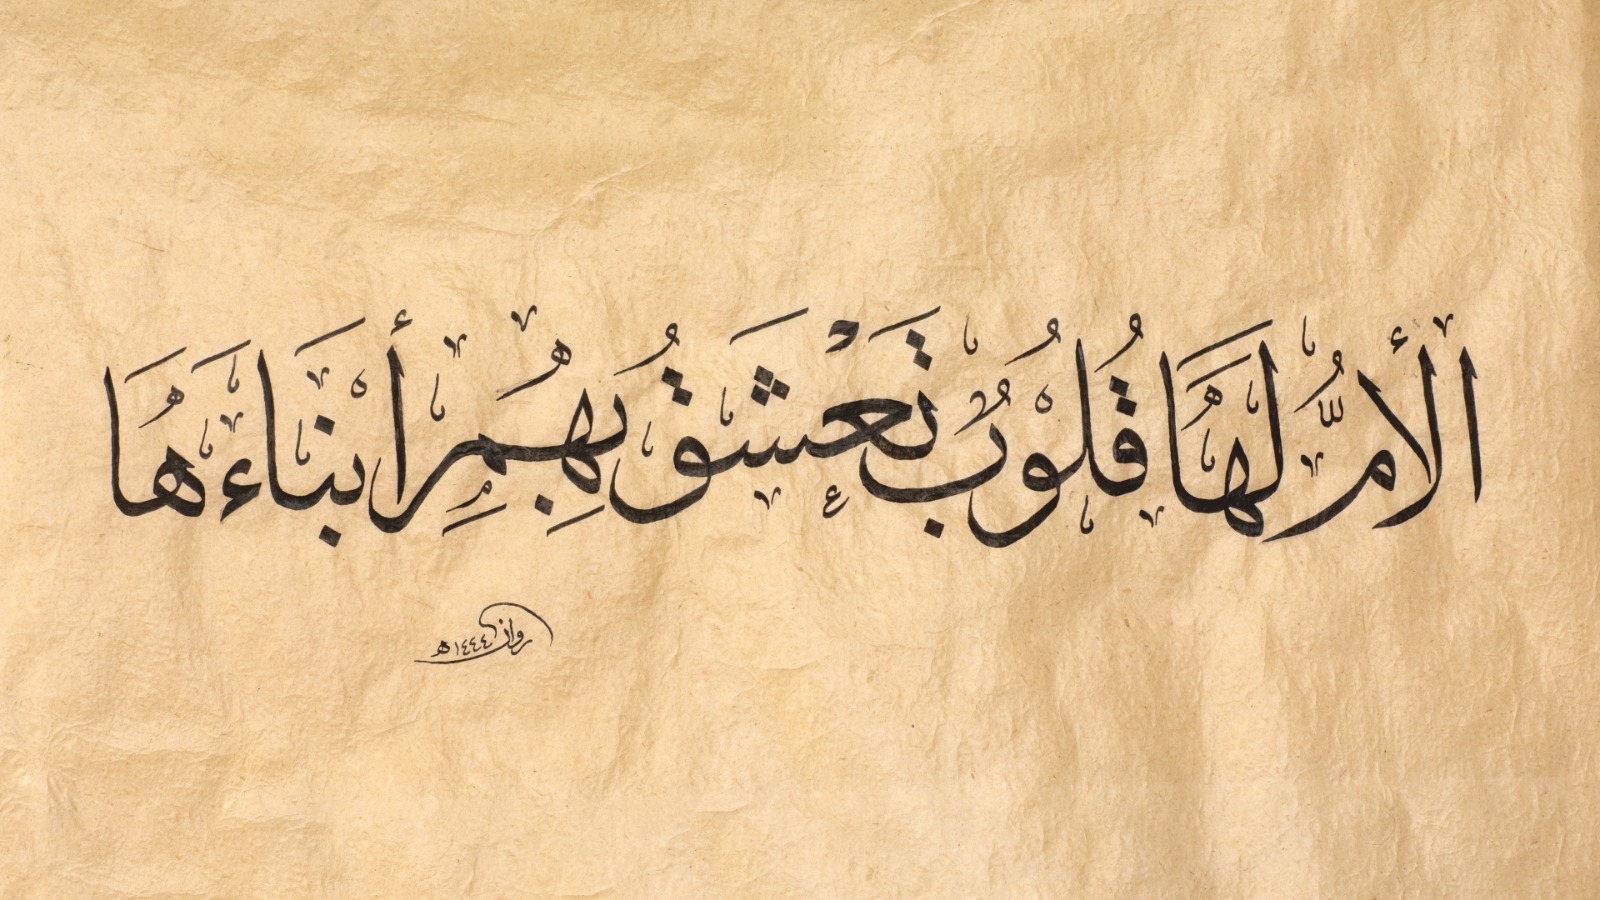 الأمُّ لَهَا قُلُوبٌ تَعْشَقُ بِهِمُ أَبْنَاءَهَا
روان ١٤٤٤هـ